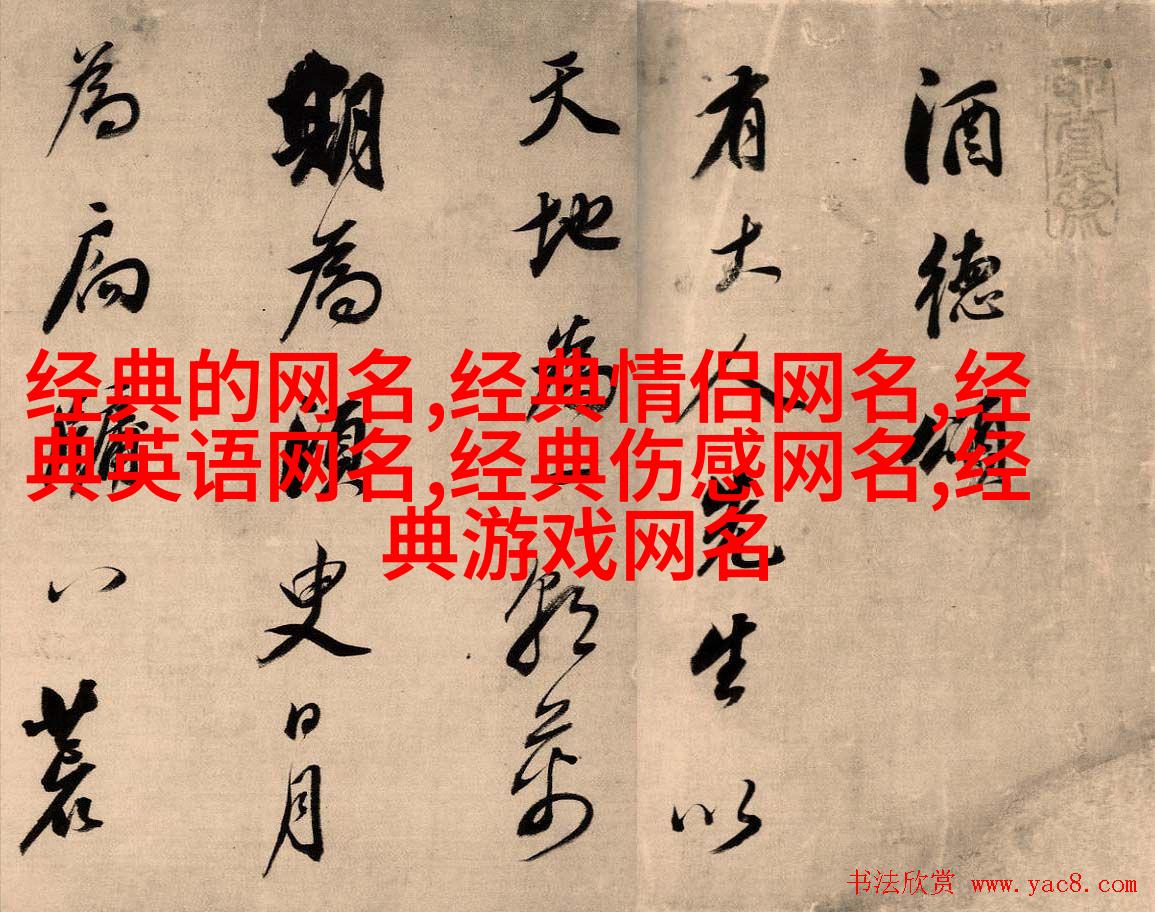 酒德頌
有大人先生以
天地為一朝萬
期為須臾日月
為扃牖八荒
经典的网名,经典情侣网名,经
典英语网名,经典伤感网名,经
典游戏网名
书法欣赏 www.yac8.com